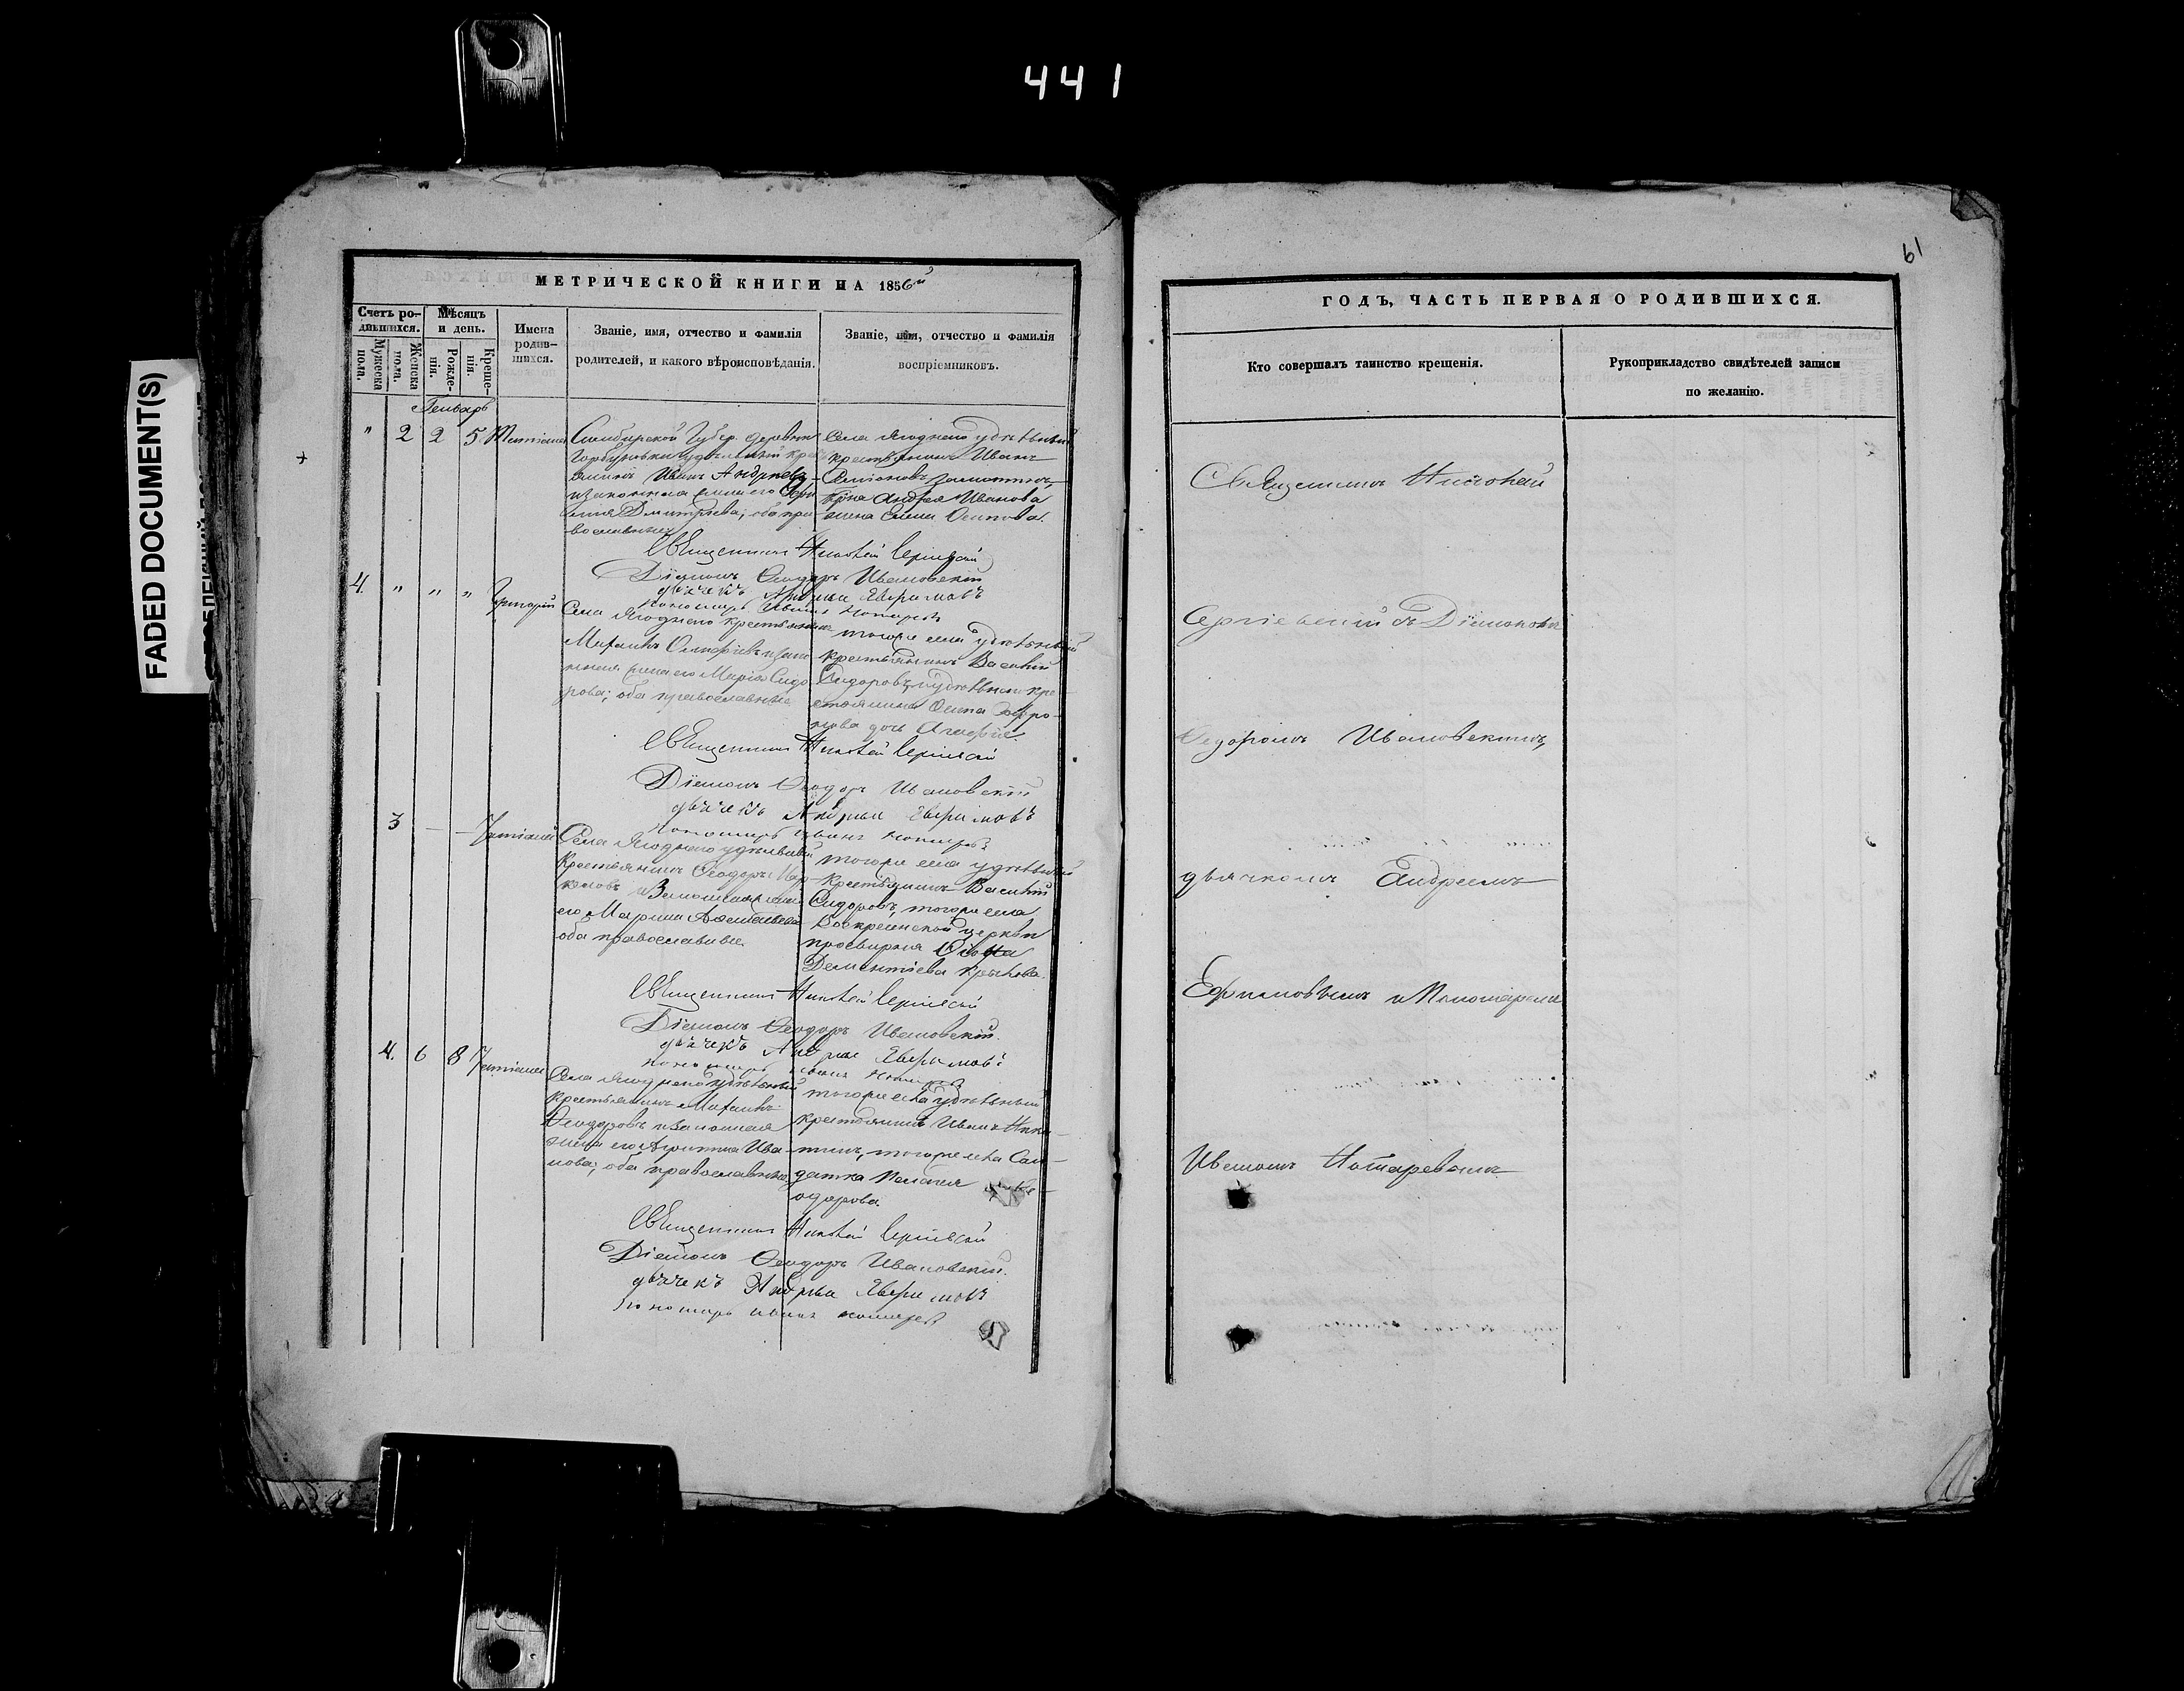 441
FADED DOCUMENT(S)
61
МЕТРИЧЕСКОЙ КНИГИ НА 1856й
Счетъ ро-
дившихся.
Мужеска
пола.
Женска
пола.
Мѣсяцъ
и день.
Рожде-
нія.
Креще-
нія.
Имена
родив-
шихся.
Званіе, имя, отчество и фамилія
родителей, и какого вѣроисповѣданія.
Званіе, имя, отчество и фамилія
воспріемниковъ.
Генварь
" 2 2 5 Татіана
Симбирской Губер. деревни
Горбуновки удѣльный кре
янинъ Иванъ Андреевъ
и законная жена его
Димитріева; оба пра-
вославные
Села Ягоднаго удѣльный
крестьянинъ Иванъ
Андрея Иванова
жена Елена Осипова.
Священникъ Николай Сергіевскій
Діаконъ Ѳеодоръ Ивановскій
дьячекъ Андрей Ефимовъ
пономарь Иванъ
4. " " " Григорій
Села Ягоднаго крестьянинъ
Михаилъ и зако
нная жена его Марія Сидо
рова; оба православные
тогоже села удѣльный
крестьянинъ Василій
Сидоровъ, и удѣльнаго кре
стьянина Осипа
нова дочь
Священникъ Николай Сергіевскій
Діаконъ Ѳеодоръ Ивановскій
дьячекъ Андрей Ефимовъ
пономарь Иванъ
3 — — Татіана
Села Ягоднаго удѣльный
крестьянинъ Ѳеодоръ Мар
келовъ и Законная жена
его Марина
оба православные.
тогоже села удѣльный
крестьянинъ Василій
Сидоровъ, тогоже села
Воскресенской церкви
просвирня
Дементіева
Священникъ Николай Сергіевскій
Діаконъ Ѳеодоръ Ивановскій.
дьячекъ Андрей Ефимовъ
пономарь Иванъ
4. 6 8 Татіана
Села Ягоднаго удѣльный
крестьянинъ Михаилъ
Ѳеодоровъ и Законная
жена его Ива-
нова; оба православные
тогоже села удѣльный
крестьянинъ Иванъ Ники-
тинъ, тогоже села Сол-
датка Пелагея
одорова.
Священникъ Николай Сергіевскій
Діаконъ Ѳеодоръ Ивановскій.
дьячекъ Андрей Ефимовъ
пономарь Иванъ
ГОДЪ, ЧАСТЬ ПЕРВАЯ О РОДИВШИХСЯ.
Кто совершалъ таинство крещенія.
Рукоприкладство свидѣтелей записи
по желанію.
Священникъ Николай
Сергіевскій съ Діакономъ
Ѳедоромъ Ивановскимъ,
дьячкомъ Андреемъ
Ефимовымъ и Пономаремъ
Иваномъ